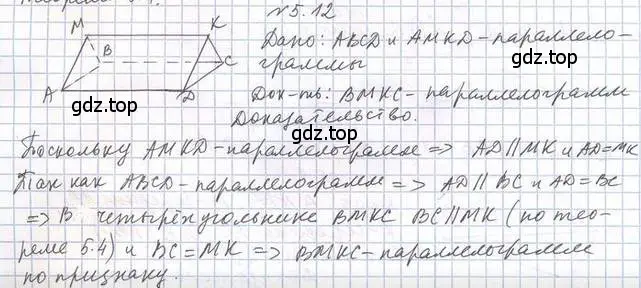 №5.12
M K
B C
A D
Дано: ABCD и AMKD-параллело-
граммы
gdz.top
gdz.top
Док-ть: BMKC- параллелограмм
Доказательство.
Поскольку AMKD-параллелограмм => AD||MK и AD=MK
Так как ABCD-параллелограмм => AD||BC и AD=BC
=> В четырёхугольнике BMKC BC||MK (по тео-
реме 5.4) и BC=MK => BMKC-параллелограмм
по признаку.
gdz.top
gdz.top